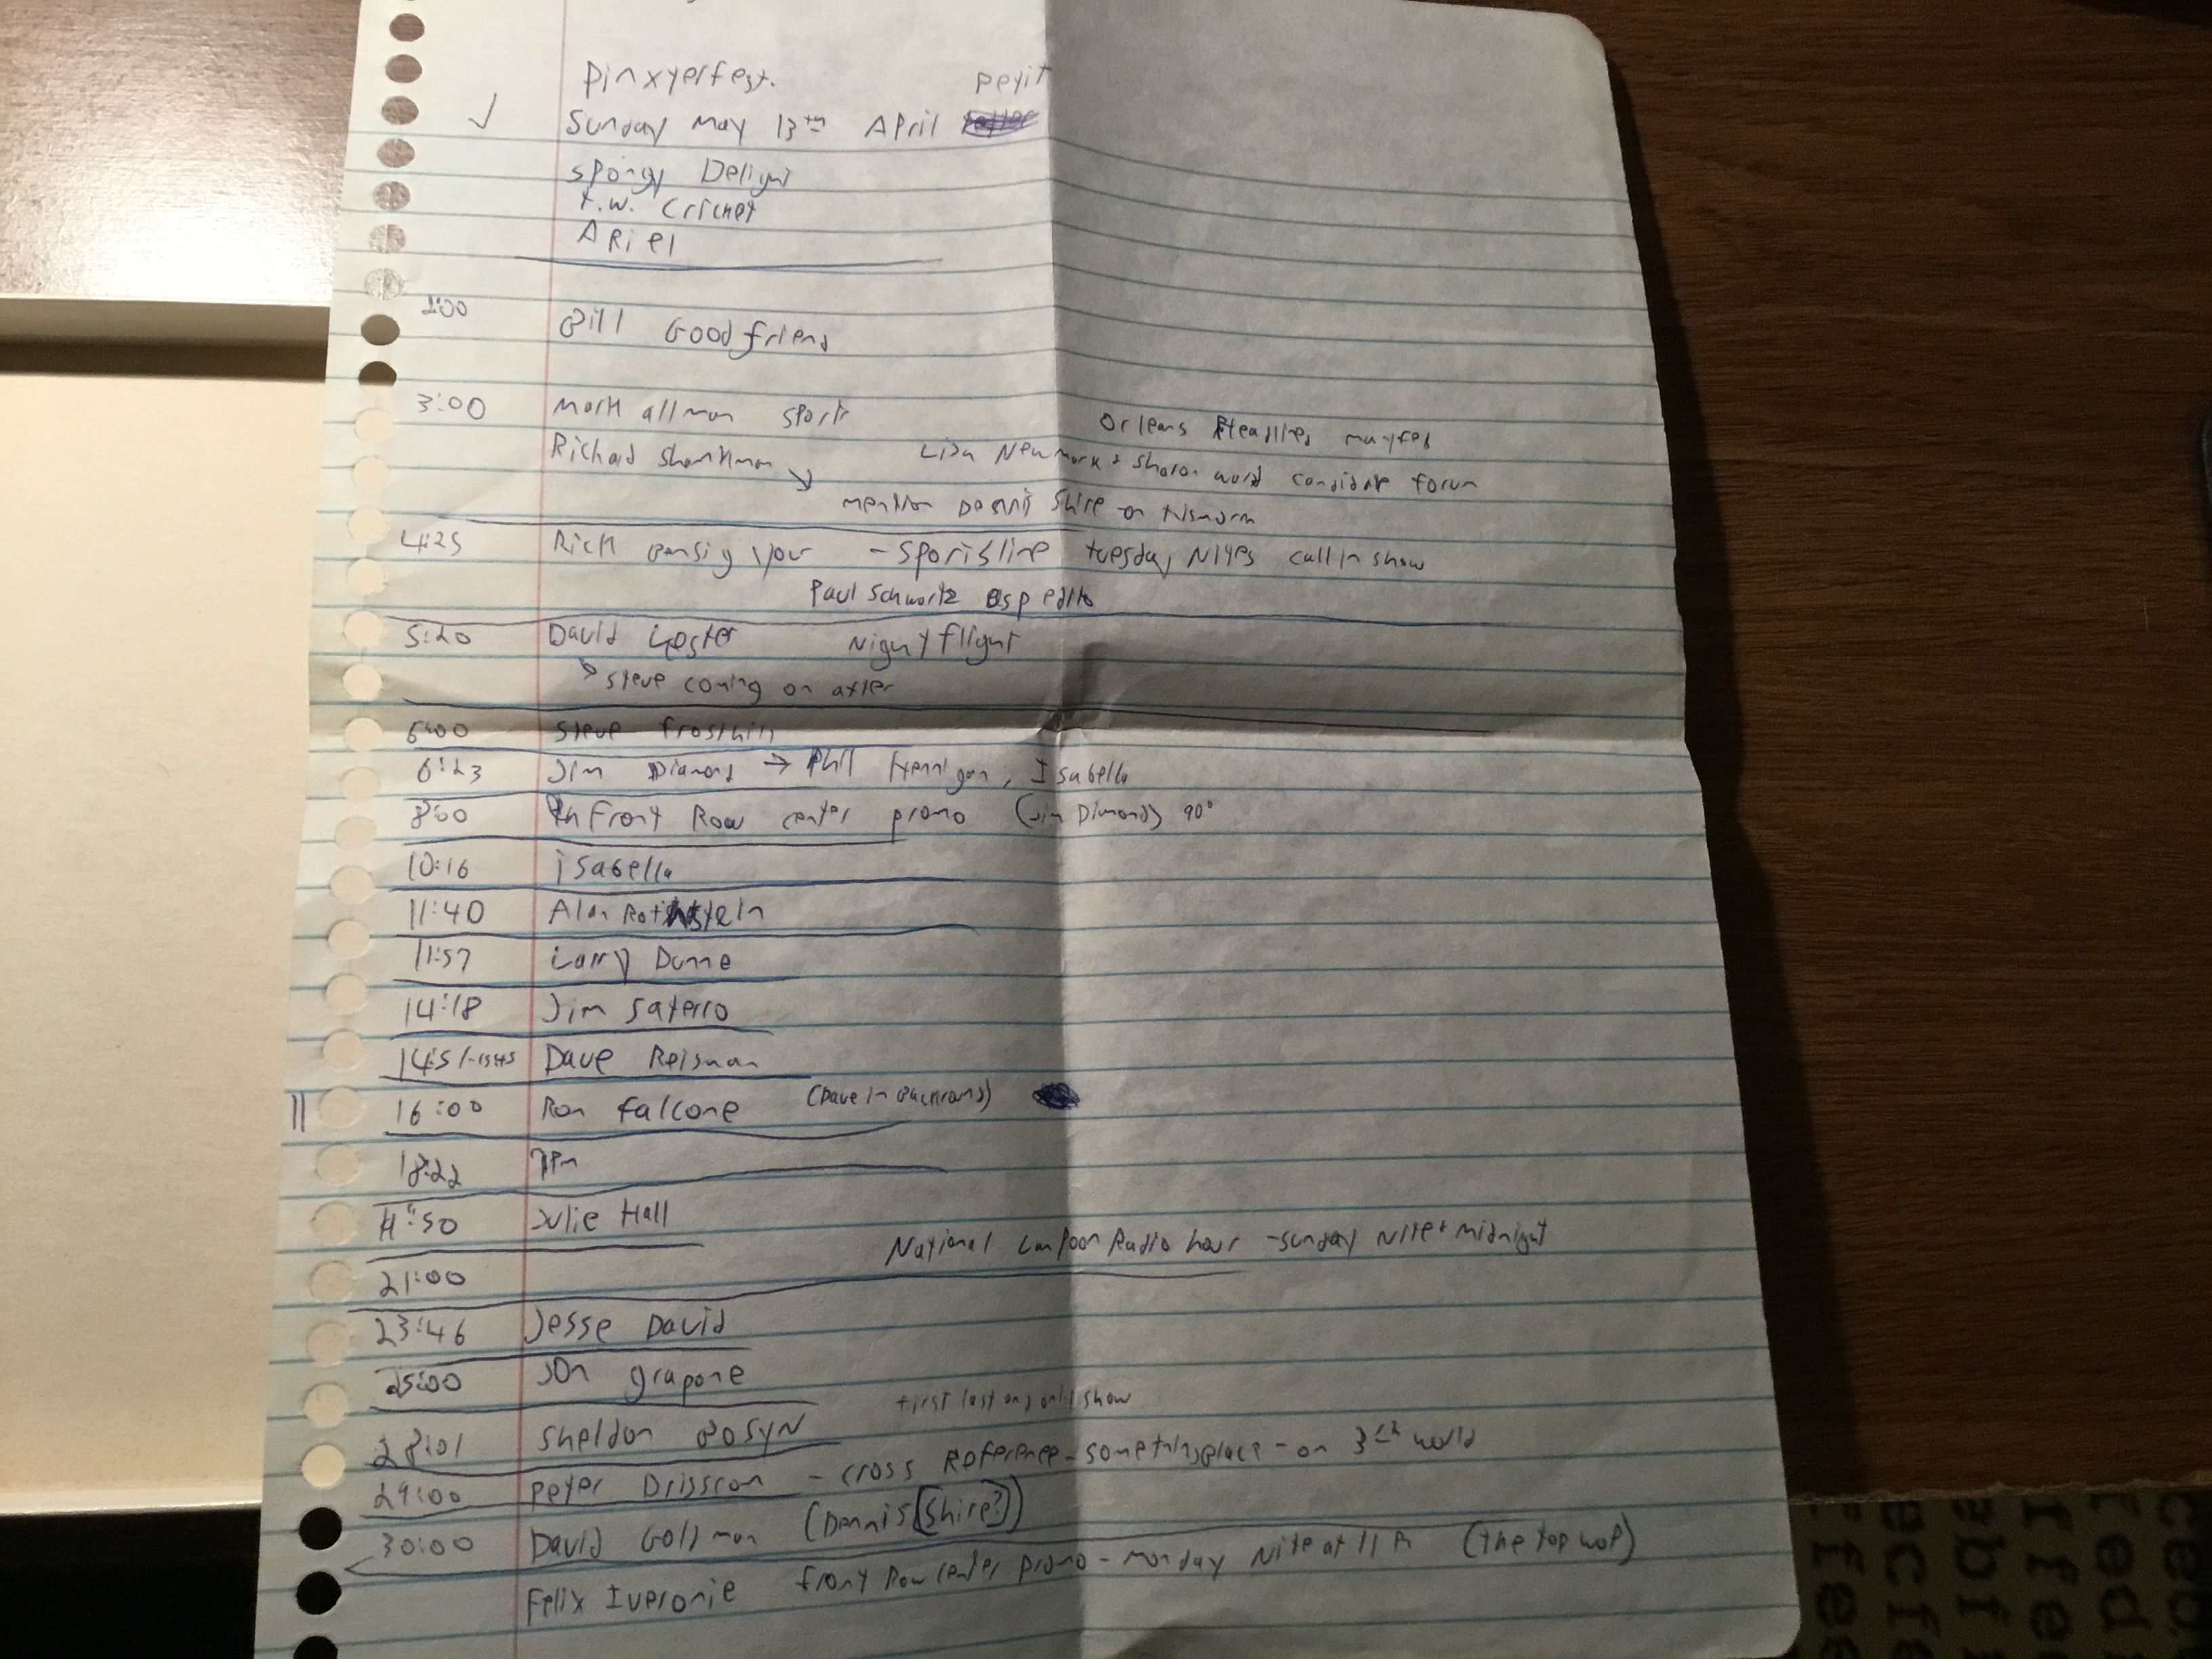 Pinxterfest. petit
✓ Sunday May 13th April
Spongy Delight
t.w. cricket
Ariel
1:00 Bill Goodfriend
3:00 Mark allman sports
Orleans Headlines mayfes
Richard Shankman → Lisa Newmark + Sharon word candidate forum
mention Dennis Shire on
4:25 Rich - Sportsline tuesday Nites call in show
Paul Schwartz asp editor
5:20 David Lester Night flight
↳ Steve coming on after
6:00 Steve
6:23 Jim Diamond → Phil Hennigan, Isabella
8:00 Front Row center promo (Jim Dimond) 90°
10:16 isabella
11:40 Alan Rothstein
11:57 Larry Dunne
14:18 Jim Saterro
14:51-1545 Dave Reisman
|| 16:00 Ron falcone (Dave in Backround)
18:22
:50 Julie Hall
National Lampoon Radio hour - Sunday Nite + Midnight
21:00
23:46 Jesse David
25:00 Jon grapone
first last and only show
28:01 Sheldon BosyN
29:00 Peter Drisscon - cross Reference - somethingplace - on 3rd world
30:00 David Gollman (Dennis (Shire?))
Felix Iveronie front Row center promo - monday Nite at 11 P (the top wop)